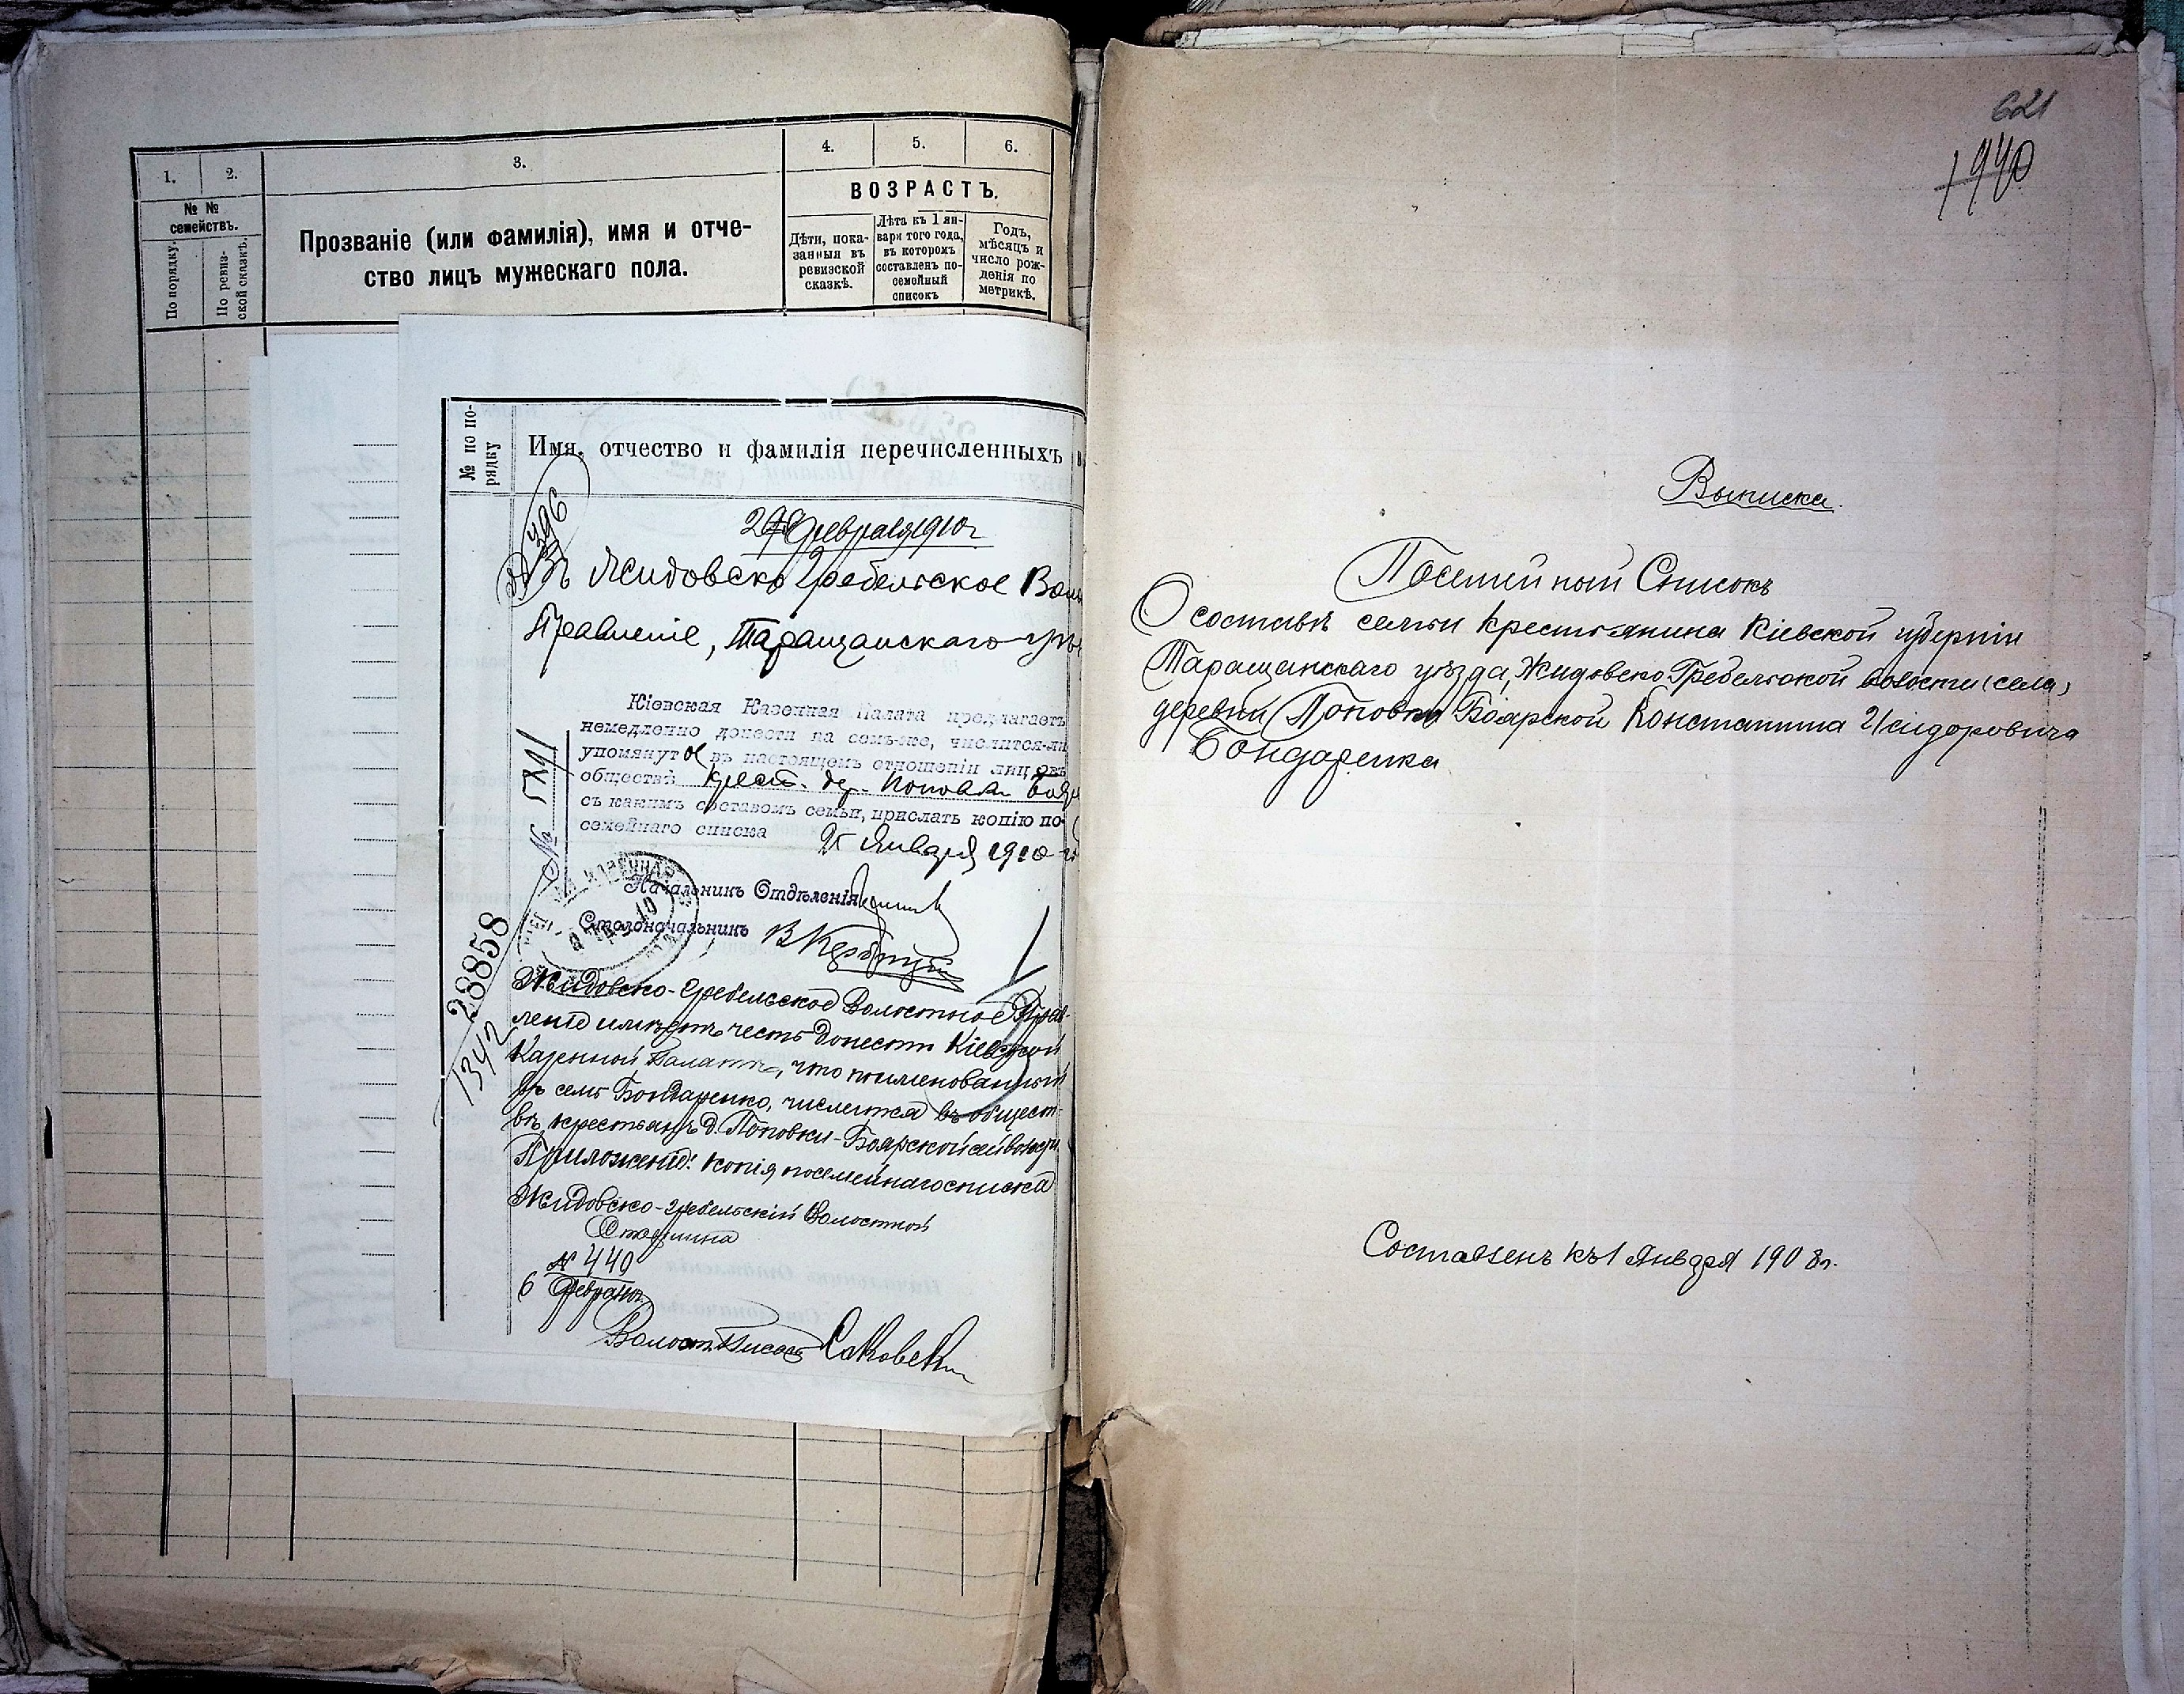 1.
2.
3.
4.
5.
6.
№ №
семействъ.
По порядку.
По ревиз-
ской сказкѣ.
Прозваніе (или фамилія), имя и отче-
ство лицъ мужескаго пола.
ВОЗРАСТЪ.
Дѣти, пока-
занныя въ
ревизской
сказкѣ.
Лѣта къ 1 ян-
варя того года,
въ которомъ
составленъ по-
семейный
списокъ
Годъ,
мѣсяцъ и
число рож-
денія по
метрикѣ.
№ по по-
рядку
Имя, отчество и фамилія перечисленныхъ
396
февраля 1910 г
Жидовско Гребельское
Правленіе, Таращанскаго
Кіевская Казенная Палата предлагаетъ
немедленно донести на семъ-же, числится-ли
упомянут въ настоящемъ отношеніи лиц
обществѣ крест. дер. Поповки
съ какимъ составомъ семьи, прислать копію по-
семейнаго списка
Января 1910
Начальникъ Отдѣленія
Столоначальникъ
28858
1342
Жидовско-Гребельское Волостное Прав-
леніе имѣетъ честь донести Кіевской
Казенной Палатѣ, что поименованный
въ семъ Бондаренко, числится въ общест-
вѣ крестьянъ д. Поповки-Боярской
Приложеніе: копія посемейнаго списка
Жидовско-Гребельскій Волостной
Старшина
№ 440
6 Февр
Волост. Писарь
621
1940
Выписка.
Посемейный Списокъ
О составѣ семьи крестьянина Кіевской губерніи
Таращанскаго уѣзда, Жидовско Гребельской волости (села)
деревни Поповки Боярской Константина Исидоровича
Бондаренка
Составленъ къ 1 Января 1908 г.